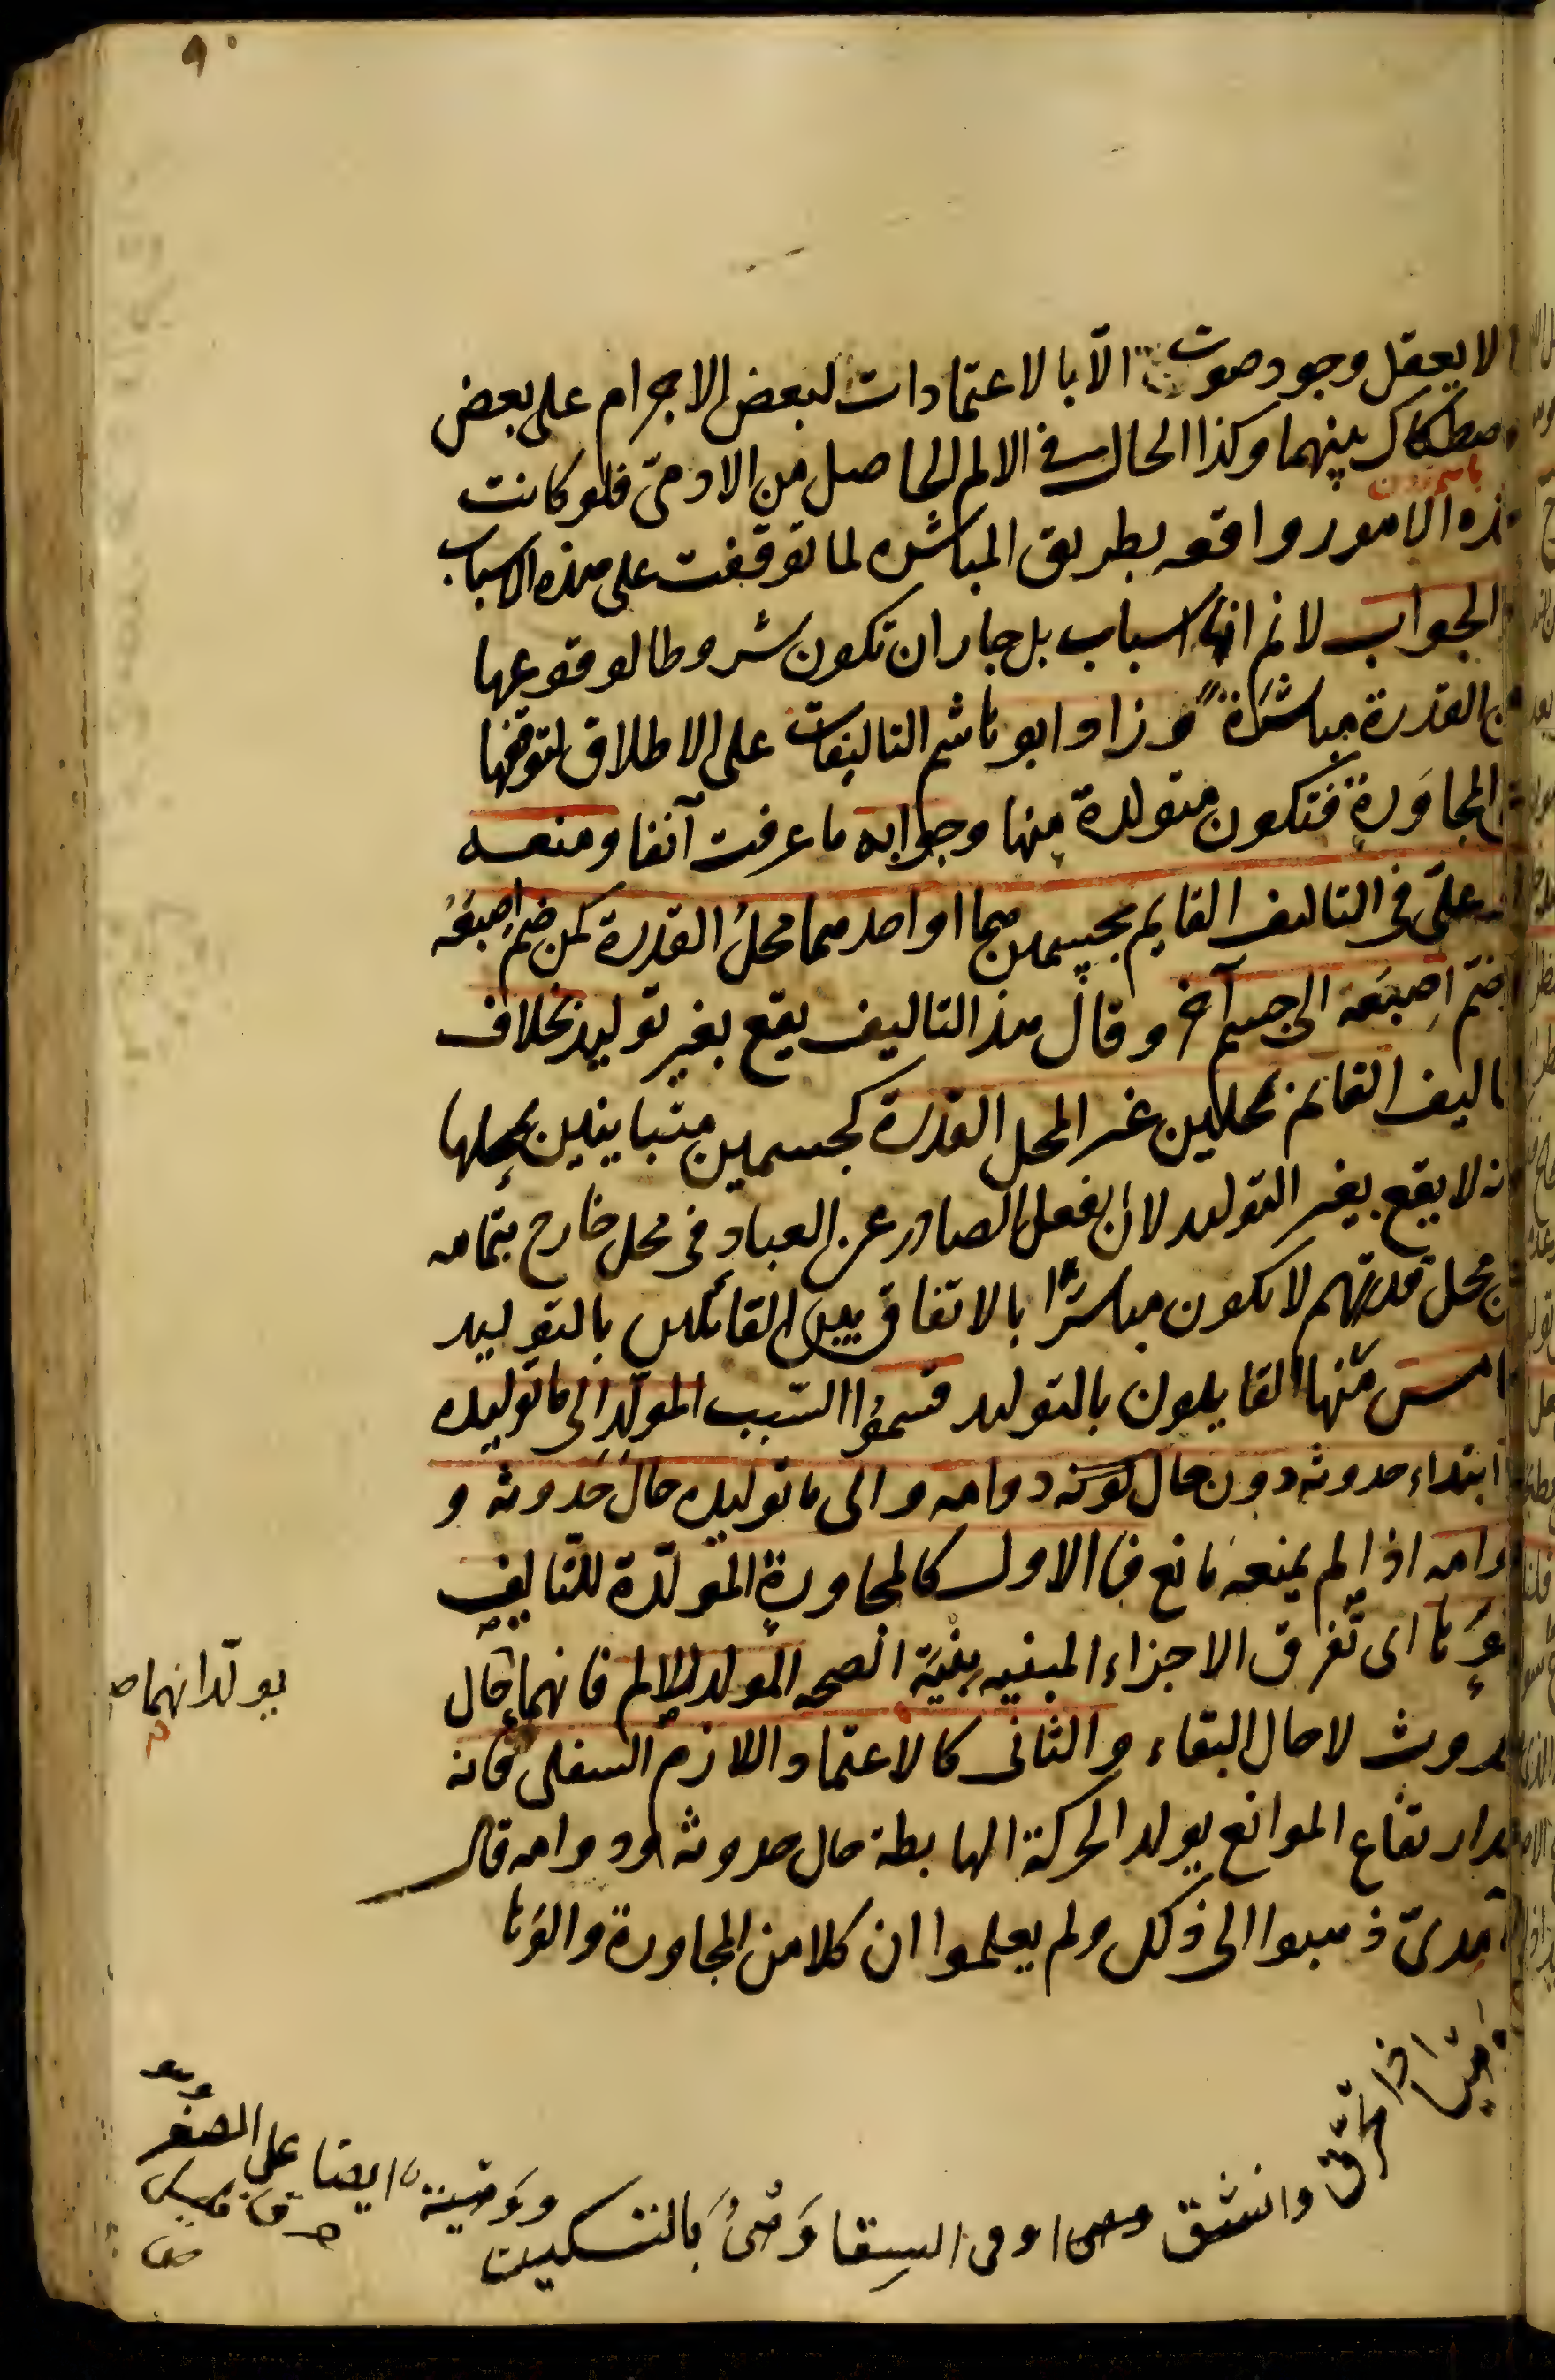 ٩٠
لا يعقل وجود صوت الّا بالاعتمادات لبعض الاجرام على بعض
صطكاك بينهما وكذا الحال فى الالم الحاصل من الادمىّ فلو كانت
ذه الامور واقعه بطريق المباشره لما توقفت على هذه الاسباب
الجواب لانم انها اسباب بل جاز ان تكون شروطا لوقوعها
القدرة مباشرة وزاد ابو هاشم التاليفات على الاطلاق لتوقفها
المجاوَرةِ فتكون متولدة منها وجوابه ما عرفت آنفا ومنعه
علىّ فى التاليف القايم بجسمين هما او احدهما محلُ القدرة كمن ضم اِصبَعَهُ
ضمّ اِصبَعَه الى جسم آخر وقال هذ التاليف يقع بغير توليد بخلاف
اليف القائم بمحلين غير المحل القدرة كجسمين متباينين لمحلها
نه لا يقع بغير التوليد لان الفعل الصادر عن العباد فى محل خارج بتمامه
ن محل قدرتهم لا يكون مباشرًا بالاتفاق بين القائلين بالتوليد
امس منها القايلون بالتوليد قسمُوا السّبب المولّد الى ما توليده
ابتداء حدوثه دون حال كونه دوامه والى ما توليده حالَ حُدوثه و
وامه اذا لم يمنعه مانع فا الاول كالمجاورةِ المولّدة للتاليفِ
وَها اى تفرق الاجزاء المبنيه بنْيَة الصحه المولد للالم فانهما حال
حدوث لا حال البقاء والثانى كالاعتماد اللازم السفلى فانه
دارتفاع الموانع يولد الحركة الهابطة حال حدوثه ودوامه قال
آمدىّ ذهبوا الى ذلك ولم يعلموا ان كلا من المجاورة والوَها
يولّدانهما صح
اذا تخرّق وانشق السِقا بالتسكين
ايضا على الصغر